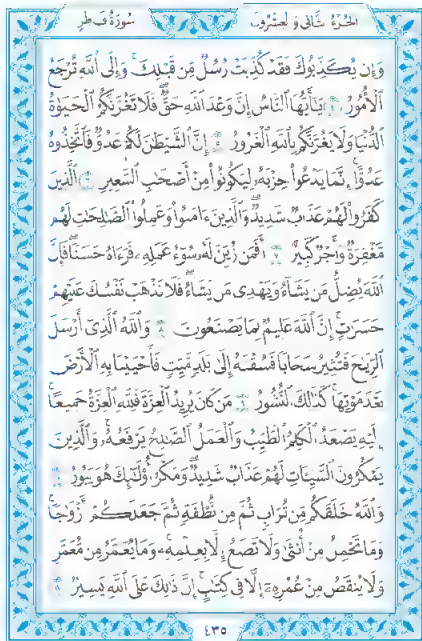 الجزء الثاني والعشرون سورة فاطر
وَإِن يُكَذِّبُوكَ فَقَدْ كُذِّبَتْ رُسُلٌ مِّن قَبْلِكَ ۚ وَإِلَى ٱللَّهِ تُرْجَعُ
ٱلْأُمُورُ ٤ يَٰٓأَيُّهَا ٱلنَّاسُ إِنَّ وَعْدَ ٱللَّهِ حَقٌّ ۖ فَلَا تَغُرَّنَّكُمُ ٱلْحَيَوٰةُ
ٱلدُّنْيَا وَلَا يَغُرَّنَّكُم بِٱللَّهِ ٱلْغَرُورُ ٥ إِنَّ ٱلشَّيْطَٰنَ لَكُمْ عَدُوٌّ فَٱتَّخِذُوهُ
عَدُوًّا ۚ إِنَّمَا يَدْعُوا۟ حِزْبَهُۥ لِيَكُونُوا۟ مِنْ أَصْحَٰبِ ٱلسَّعِيرِ ٦ ٱلَّذِينَ
كَفَرُوا۟ لَهُمْ عَذَابٌ شَدِيدٌ ۖ وَٱلَّذِينَ ءَامَنُوا۟ وَعَمِلُوا۟ ٱلصَّٰلِحَٰتِ لَهُم
مَّغْفِرَةٌ وَأَجْرٌ كَبِيرٌ ٧ أَفَمَن زُيِّنَ لَهُۥ سُوٓءُ عَمَلِهِۦ فَرَءَاهُ حَسَنًا ۖ فَإِنَّ
ٱللَّهَ يُضِلُّ مَن يَشَآءُ وَيَهْدِى مَن يَشَآءُ ۖ فَلَا تَذْهَبْ نَفْسُكَ عَلَيْهِمْ
حَسَرَٰتٍ ۚ إِنَّ ٱللَّهَ عَلِيمٌۢ بِمَا يَصْنَعُونَ ٨ وَٱللَّهُ ٱلَّذِىٓ أَرْسَلَ
ٱلرِّيَٰحَ فَتُثِيرُ سَحَابًا فَسُقْنَٰهُ إِلَىٰ بَلَدٍ مَّيِّتٍ فَأَحْيَيْنَا بِهِ ٱلْأَرْضَ
بَعْدَ مَوْتِهَا ۚ كَذَٰلِكَ ٱلنُّشُورُ ٩ مَن كَانَ يُرِيدُ ٱلْعِزَّةَ فَلِلَّهِ ٱلْعِزَّةُ جَمِيعًا ۚ
إِلَيْهِ يَصْعَدُ ٱلْكَلِمُ ٱلطَّيِّبُ وَٱلْعَمَلُ ٱلصَّٰلِحُ يَرْفَعُهُۥ ۚ وَٱلَّذِينَ
يَمْكُرُونَ ٱلسَّيِّـَٔاتِ لَهُمْ عَذَابٌ شَدِيدٌ ۖ وَمَكْرُ أُو۟لَٰٓئِكَ هُوَ يَبُورُ ١٠
وَٱللَّهُ خَلَقَكُم مِّن تُرَابٍ ثُمَّ مِن نُّطْفَةٍ ثُمَّ جَعَلَكُمْ أَزْوَٰجًا ۚ
وَمَا تَحْمِلُ مِنْ أُنثَىٰ وَلَا تَضَعُ إِلَّا بِعِلْمِهِۦ ۚ وَمَا يُعَمَّرُ مِن مُّعَمَّرٍ
وَلَا يُنقَصُ مِنْ عُمُرِهِۦٓ إِلَّا فِى كِتَٰبٍ ۚ إِنَّ ذَٰلِكَ عَلَى ٱللَّهِ يَسِيرٌ ١١
٤٣٥